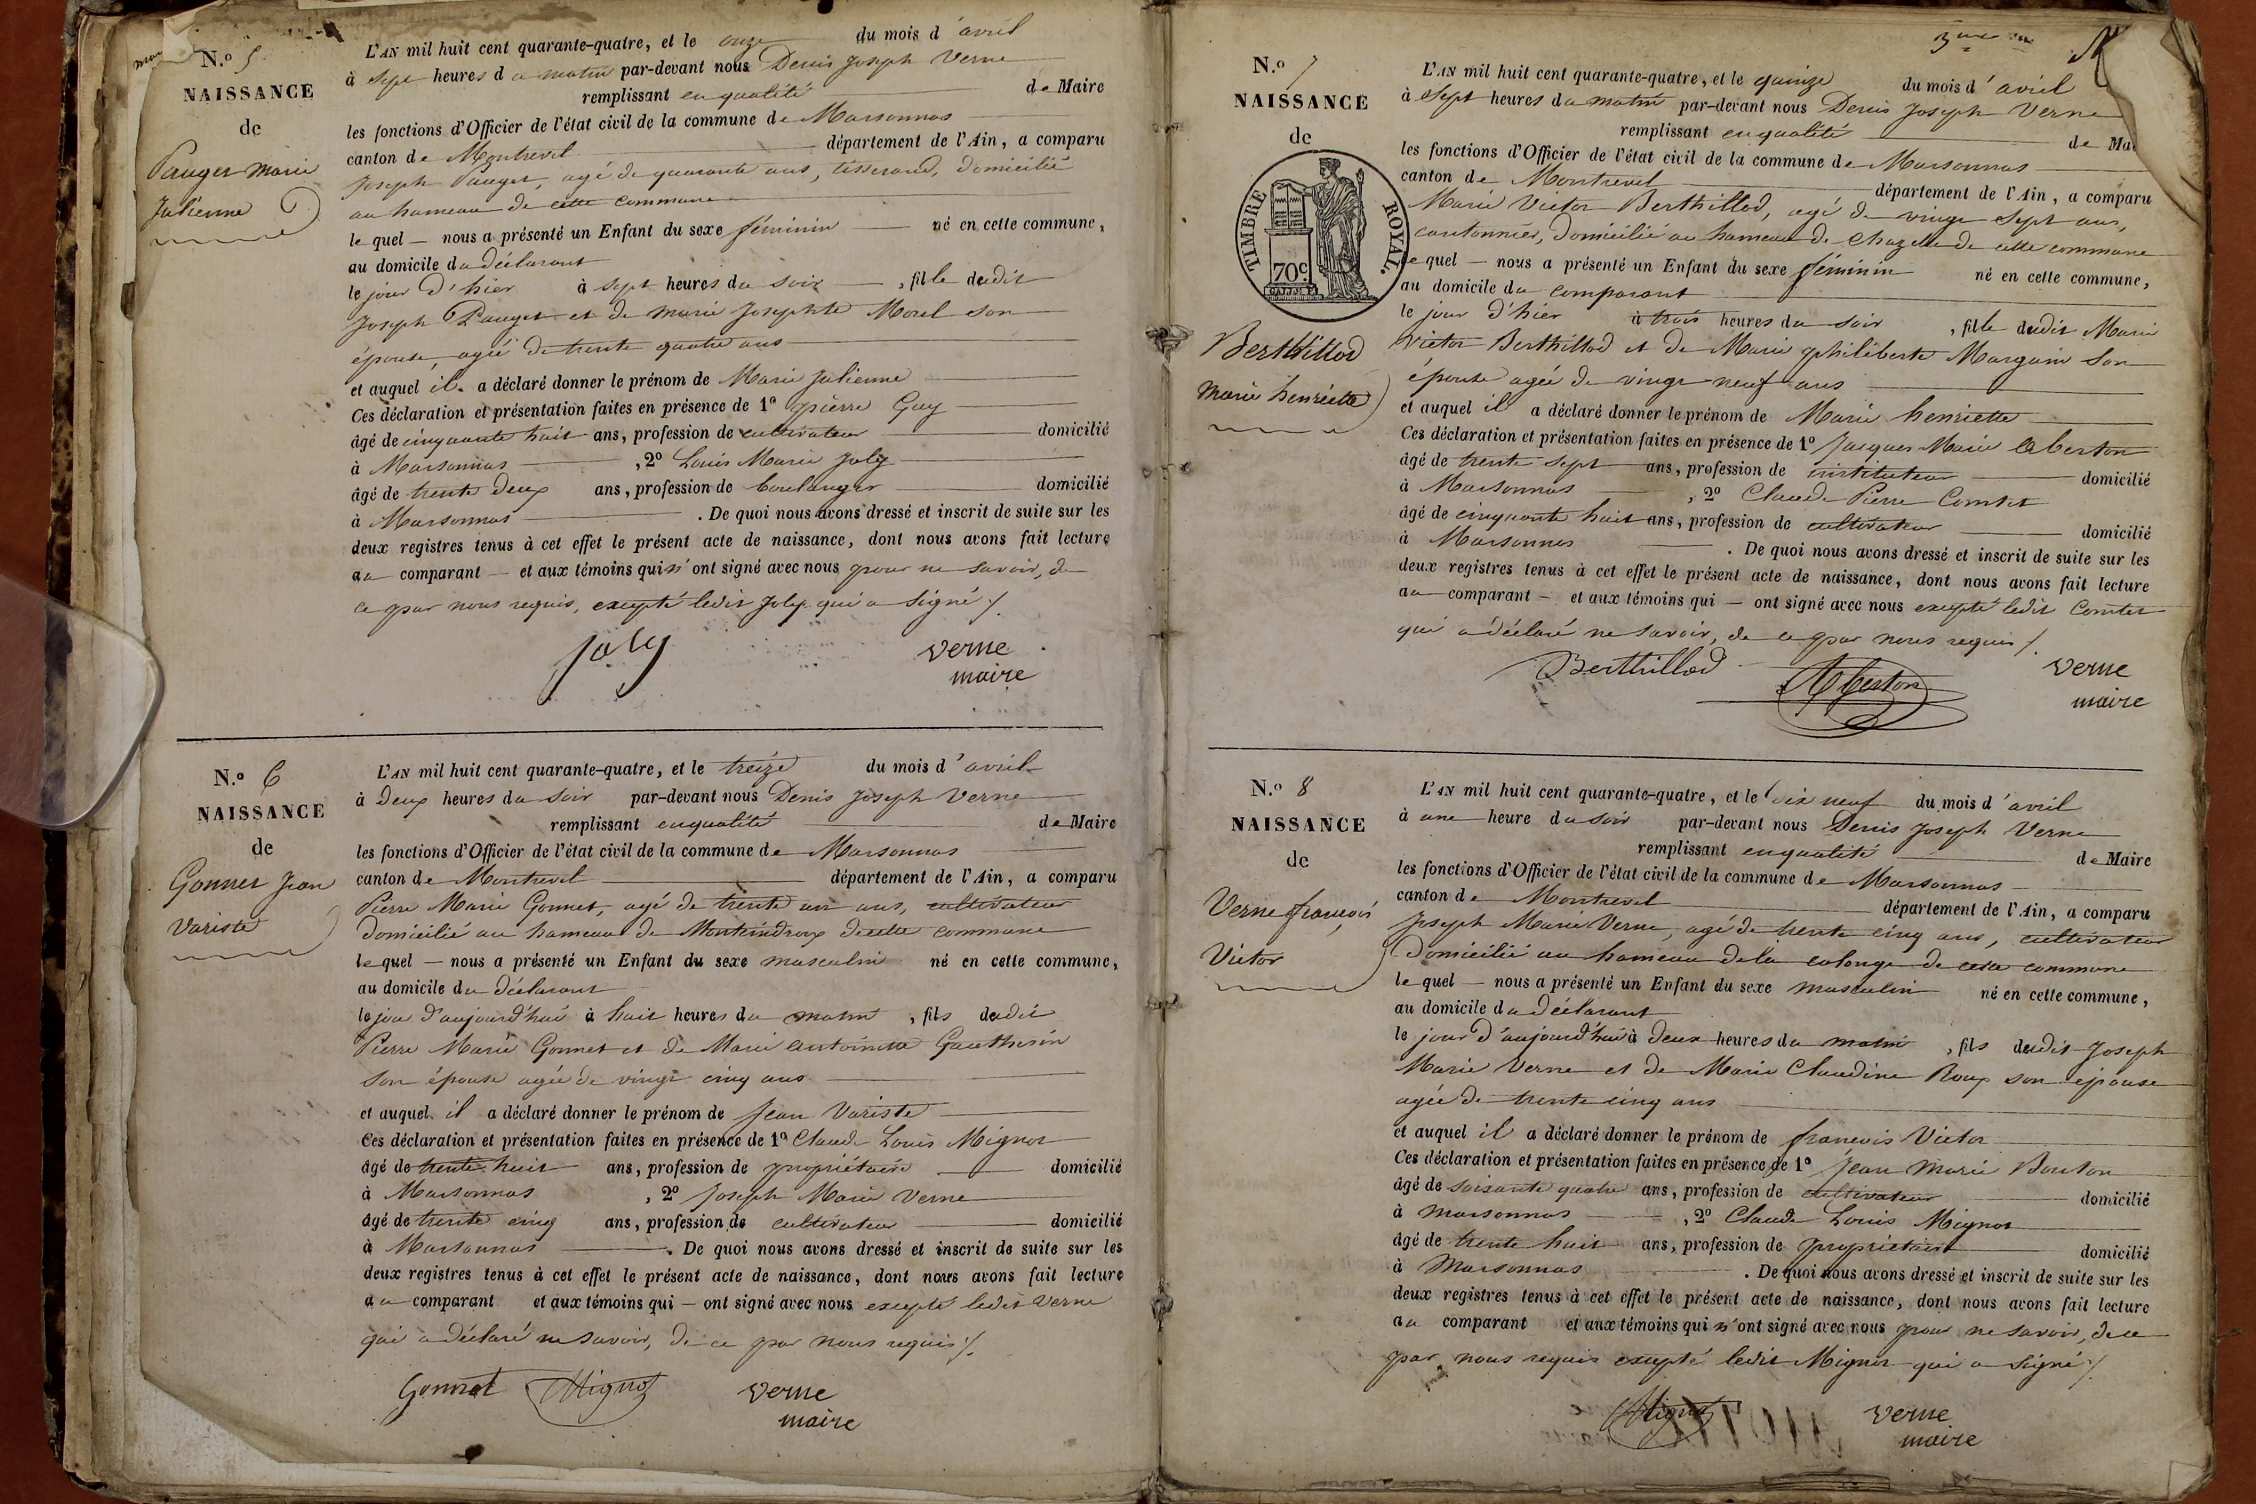 N.o 5
NAISSANCE
de
Pauget Marie
Julienne
L'AN mil huit cent quarante-quatre, et le onze du mois d'avril
à sept heures du matin par-devant nous Denis Joseph Verne
remplissant en qualité de Maire
les fonctions d'Officier de l'état civil de la commune de Marsonnas
canton de Montrevel département de l'Ain, a comparu
Joseph Pauget, agé de quarante ans, tisserand, domicilié
au hameau de cette commune
lequel — nous a présenté un Enfant du sexe féminin né en cette commune,
au domicile du déclarant
le jour d'hier à sept heures du soir, fille dudit
Joseph Pauget et de Marie Josephte Morel son
épouse, agée de trente quatre ans
et auquel il a déclaré donner le prénom de Marie Julienne
Ces déclaration et présentation faites en présence de 1o pierre Guy
âgé de cinquante huit ans, profession de cultivateur domicilié
à Marsonnas, 2o Louis Marie Joly
âgé de trente deux ans, profession de boulanger domicilié
à Marsonnas. De quoi nous avons dressé et inscrit de suite sur les
deux registres tenus à cet effet le présent acte de naissance, dont nous avons fait lecture
au comparant — et aux témoins qui n'ont signé avec nous pour ne savoir, de
ce par nous requis, excepté ledit Joly qui a signé /.
Joly verne
maire
N.o 6
NAISSANCE
de
Gonnet Jean
Variste
L'AN mil huit cent quarante-quatre, et le treize du mois d'avril
à deux heures du soir par-devant nous Denis Joseph Verne
remplissant en qualité de Maire
les fonctions d'Officier de l'état civil de la commune de Marsonnas
canton de Montrevel département de l'Ain, a comparu
Pierre Marie Gonnet, agé de trente un ans, cultivateur
domicilié au hameau de Monteindroux de cette commune
lequel — nous a présenté un Enfant du sexe masculin né en cette commune,
au domicile du déclarant
le jour d'aujourd'hui à huit heures du matin, fils dudit
Pierre Marie Gonnet et de Marie antoinette Gautherin
son épouse agée de vingt cinq ans
et auquel il a déclaré donner le prénom de Jean Variste
Ces déclaration et présentation faites en présence de 1o Claude Louis Mignot
âgé de trente huit ans, profession de propriétaire domicilié
à Marsonnas, 2o Joseph Marie Verne
âgé de trente cinq ans, profession de cultivateur domicilié
à Marsonnas. De quoi nous avons dressé et inscrit de suite sur les
deux registres tenus à cet effet le présent acte de naissance, dont nous avons fait lecture
au comparant et aux témoins qui — ont signé avec nous excepté ledit Verne
qui a déclaré ne savoir, de ce par nous requis /.
Gonnet Mignot verne
maire
N.o 7
NAISSANCE
de
TIMBRE ROYAL.
70c.
Berthillod
marie henriette
L'AN mil huit cent quarante-quatre, et le quinze du mois d'avril
à sept heures du matin par-devant nous Denis Joseph Verne
remplissant en qualité de Ma
les fonctions d'Officier de l'état civil de la commune de Marsonnas
canton de Montrevel département de l'Ain, a comparu
Marie Victor Berthillod, agé de vingt sept ans,
cantonnier, domicilié au hameau de Chazelle de cette commune
lequel — nous a présenté un Enfant du sexe féminin né en cette commune,
au domicile du comparant
le jour d'hier à trois heures du soir, fille dudit Marie
Victor Berthillod et de Marie philiberte Margain son
épouse agée de vingt neuf ans
et auquel il a déclaré donner le prénom de Marie henriette
Ces déclaration et présentation faites en présence de 1o Jacques Marie Aberton
âgé de trente sept ans, profession de instituteur domicilié
à Marsonnas, 2o Claude Pierre Comtet
âgé de cinquante huit ans, profession de cultivateur domicilié
à Marsonnas. De quoi nous avons dressé et inscrit de suite sur les
deux registres tenus à cet effet le présent acte de naissance, dont nous avons fait lecture
au comparant — et aux témoins qui — ont signé avec nous excepté ledit Comtet
qui a déclaré ne savoir, de ce par nous requis /.
Berthillod Aberton verne
maire
N.o 8
NAISSANCE
de
Verne françois
Victor
L'AN mil huit cent quarante-quatre, et le dix neuf du mois d'avril
à une heure du soir par-devant nous Denis Joseph Verne
remplissant en qualité de Maire
les fonctions d'Officier de l'état civil de la commune de Marsonnas
canton de Montrevel département de l'Ain, a comparu
Joseph Marie Verne, agé de trente cinq ans, cultivateur
domicilié au hameau de la calonge de cette commune
lequel — nous a présenté un Enfant du sexe masculin né en cette commune,
au domicile du déclarant
le jour d'aujourd'hui à deux heures du matin, fils dudit Joseph
Marie Verne et de Marie Claudine Roux son épouse
agée de trente cinq ans
et auquel il a déclaré donner le prénom de françois Victor
Ces déclaration et présentation faites en présence de 1o Jean Marie Bouton
âgé de soixante quatre ans, profession de cultivateur domicilié
à Marsonnas, 2o Claude Louis Mignot
âgé de trente huit ans, profession de propriétaire domicilié
à Marsonnas. De quoi nous avons dressé et inscrit de suite sur les
deux registres tenus à cet effet le présent acte de naissance, dont nous avons fait lecture
au comparant et aux témoins qui n'ont signé avec nous pour ne savoir, de ce
par nous requis excepté ledit Mignot qui a signé /.
Mignot verne
maire